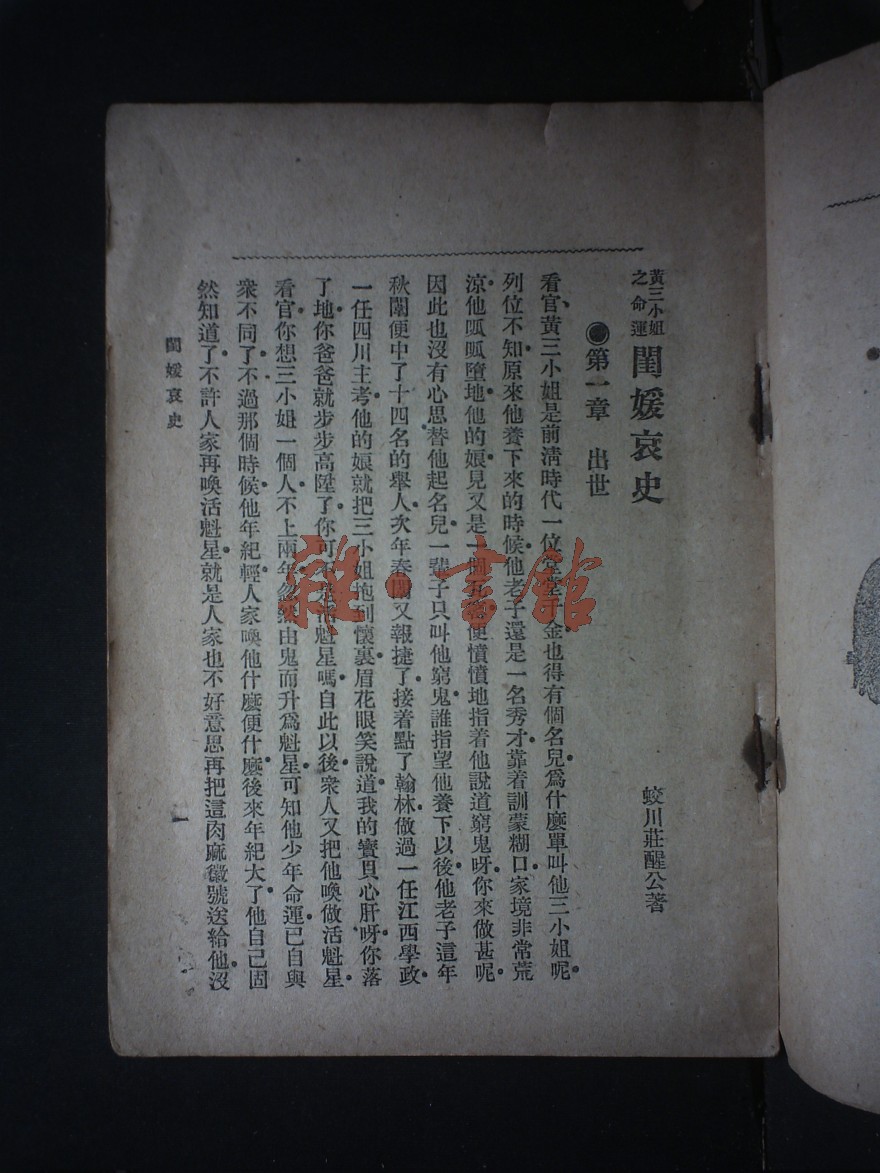 黃三小姐
之命運
閨媛哀史
蛟川莊醒公著
●第一章　出世
看官、黃三小姐是前淸時代一位堂堂千金也得有個名兒爲什麼單叫他三小姐呢。
列位不知原來他養下來的時候他老子還是一名秀才靠着訓蒙糊口家境非常荒
涼他呱呱墮地他的娘見又是一個便憤憤地指着他說道窮鬼呀你來做甚呢。
因此也沒有心思替他起名兒一輩子只叫他窮鬼誰指望他養下以後他老子這年
秋闈便中了十四名的舉人次年春闈又報捷了接着點了翰林做過一任江西學政
一任四川主考他的娘就把三小姐抱到懷裏眉花眼笑說道我的寶貝心肝呀你落
了地你爸爸就步步高陞了你可不是活魁星嗎自此以後衆人又把他喚做活魁星
看官你想三小姐一個人不上兩年忽然由鬼而升爲魁星可知他少年命運已自與
衆不同了不過那個時候他年紀輕人家喚他什麼便什麼後來年紀大了他自己固
然知道了不許人家再喚活魁星就是人家也不好意思再把這肉麻徽號送給他沒
閨媛哀史
一
雜·書館